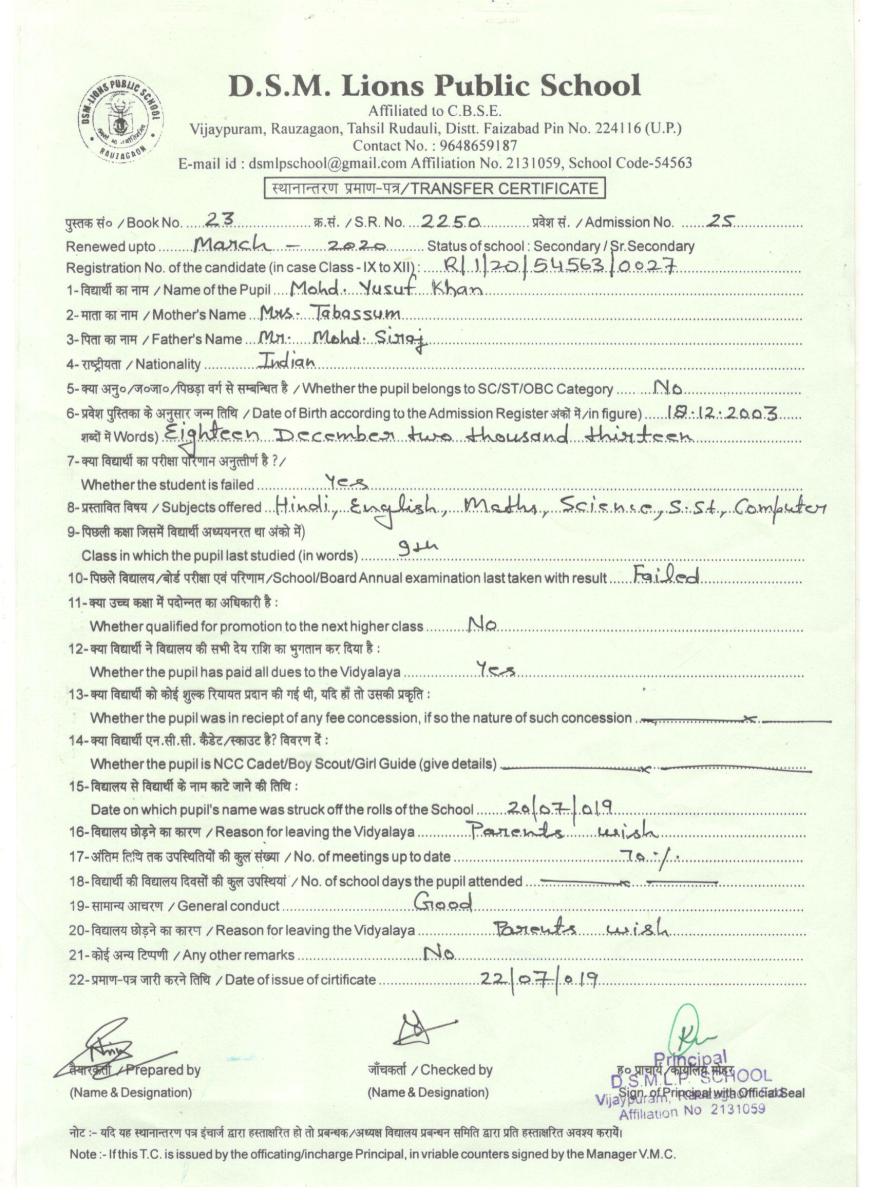 DSM-LIONS PUBLIC SCHOOL
RAUZAGAON
D.S.M. Lions Public School
Affiliated to C.B.S.E.
Vijaypuram, Rauzagaon, Tahsil Rudauli, Distt. Faizabad Pin No. 224116 (U.P.)
Contact No. : 9648659187
E-mail id : dsmlpschool@gmail.com Affiliation No. 2131059, School Code-54563
स्थानान्तरण प्रमाण-पत्र/TRANSFER CERTIFICATE
पुस्तक सं० / Book No. 23 क्र.सं. / S.R. No. 2250 प्रवेश सं. / Admission No. 25
Renewed upto March - 2020 Status of school : Secondary / Sr.Secondary
Registration No. of the candidate (in case Class - IX to XII) : R/1/20/54563/0027
1- विद्यार्थी का नाम / Name of the Pupil Mohd. Yusuf Khan
2- माता का नाम / Mother's Name Mrs. Tabassum
3- पिता का नाम / Father's Name Mr. Mohd. Siraj
4- राष्ट्रीयता / Nationality Indian
5- क्या अनु०/ज०जा०/पिछड़ा वर्ग से सम्बन्धित है / Whether the pupil belongs to SC/ST/OBC Category No
6- प्रवेश पुस्तिका के अनुसार जन्म तिथि / Date of Birth according to the Admission Register अंकों में/in figure) 18.12.2003
शब्दों में Words) Eighteen December two thousand thirteen
7- क्या विद्यार्थी का परीक्षा परिणान अनुत्तीर्ण है ?/
Whether the student is failed Yes
8- प्रस्तावित विषय / Subjects offered Hindi, English, Maths, Science, S.St, Computer
9- पिछली कक्षा जिसमें विद्यार्थी अध्ययनरत था अंको में)
Class in which the pupil last studied (in words) 9th
10- पिछले विद्यालय/बोर्ड परीक्षा एवं परिणाम/School/Board Annual examination last taken with result Failed
11- क्या उच्च कक्षा में पदोन्नत का अधिकारी है :
Whether qualified for promotion to the next higher class No
12- क्या विद्यार्थी ने विद्यालय की सभी देय राशि का भुगतान कर दिया है :
Whether the pupil has paid all dues to the Vidyalaya Yes
13- क्या विद्यार्थी को कोई शुल्क रियायत प्रदान की गई थी, यदि हाँ तो उसकी प्रकृति :
Whether the pupil was in reciept of any fee concession, if so the nature of such concession x
14- क्या विद्यार्थी एन.सी.सी. कैडेट/स्काउट है? विवरण दें :
Whether the pupil is NCC Cadet/Boy Scout/Girl Guide (give details) x
15- विद्यालय से विद्यार्थी के नाम काटे जाने की तिथि :
Date on which pupil's name was struck off the rolls of the School 20/07/019
16- विद्यालय छोड़ने का कारण / Reason for leaving the Vidyalaya Parents wish
17- अंतिम तिथि तक उपस्थितियों की कुल संख्या / No. of meetings up to date 70 %
18- विद्यार्थी की विद्यालय दिवसों की कुल उपस्थियां / No. of school days the pupil attended x
19- सामान्य आचरण / General conduct Good
20- विद्यालय छोड़ने का कारण / Reason for leaving the Vidyalaya Parents wish
21- कोई अन्य टिप्पणी / Any other remarks No
22- प्रमाण-पत्र जारी करने तिथि / Date of issue of cirtificate 22/07/019
तैयारकर्ता / Prepared by जाँचकर्ता / Checked by ह० प्राचार्य/कार्यालय मोहर
(Name & Designation) (Name & Designation) Sign. of Principal with Official Seal
Principal
D S.M.L.P. SCHOOL
Vijaypuram,
Affiliation No 2131059
नोट :- यदि यह स्थानान्तरण पत्र इंचार्ज द्वारा हस्ताक्षरित हो तो प्रबन्धक/अध्यक्ष विद्यालय प्रबन्धन समिति द्वारा प्रति हस्ताक्षरित अवश्य करायें।
Note :- If this T.C. is issued by the officating/incharge Principal, in vriable counters signed by the Manager V.M.C.